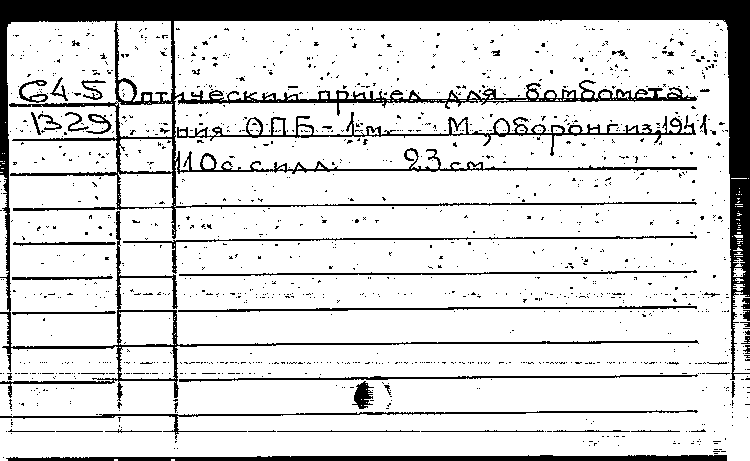 64-5 Оптический прицел для бомбомета-
1329 ния ОПБ-1м. М., Оборонгиз, 1941.
110с. с илл. 23 см.